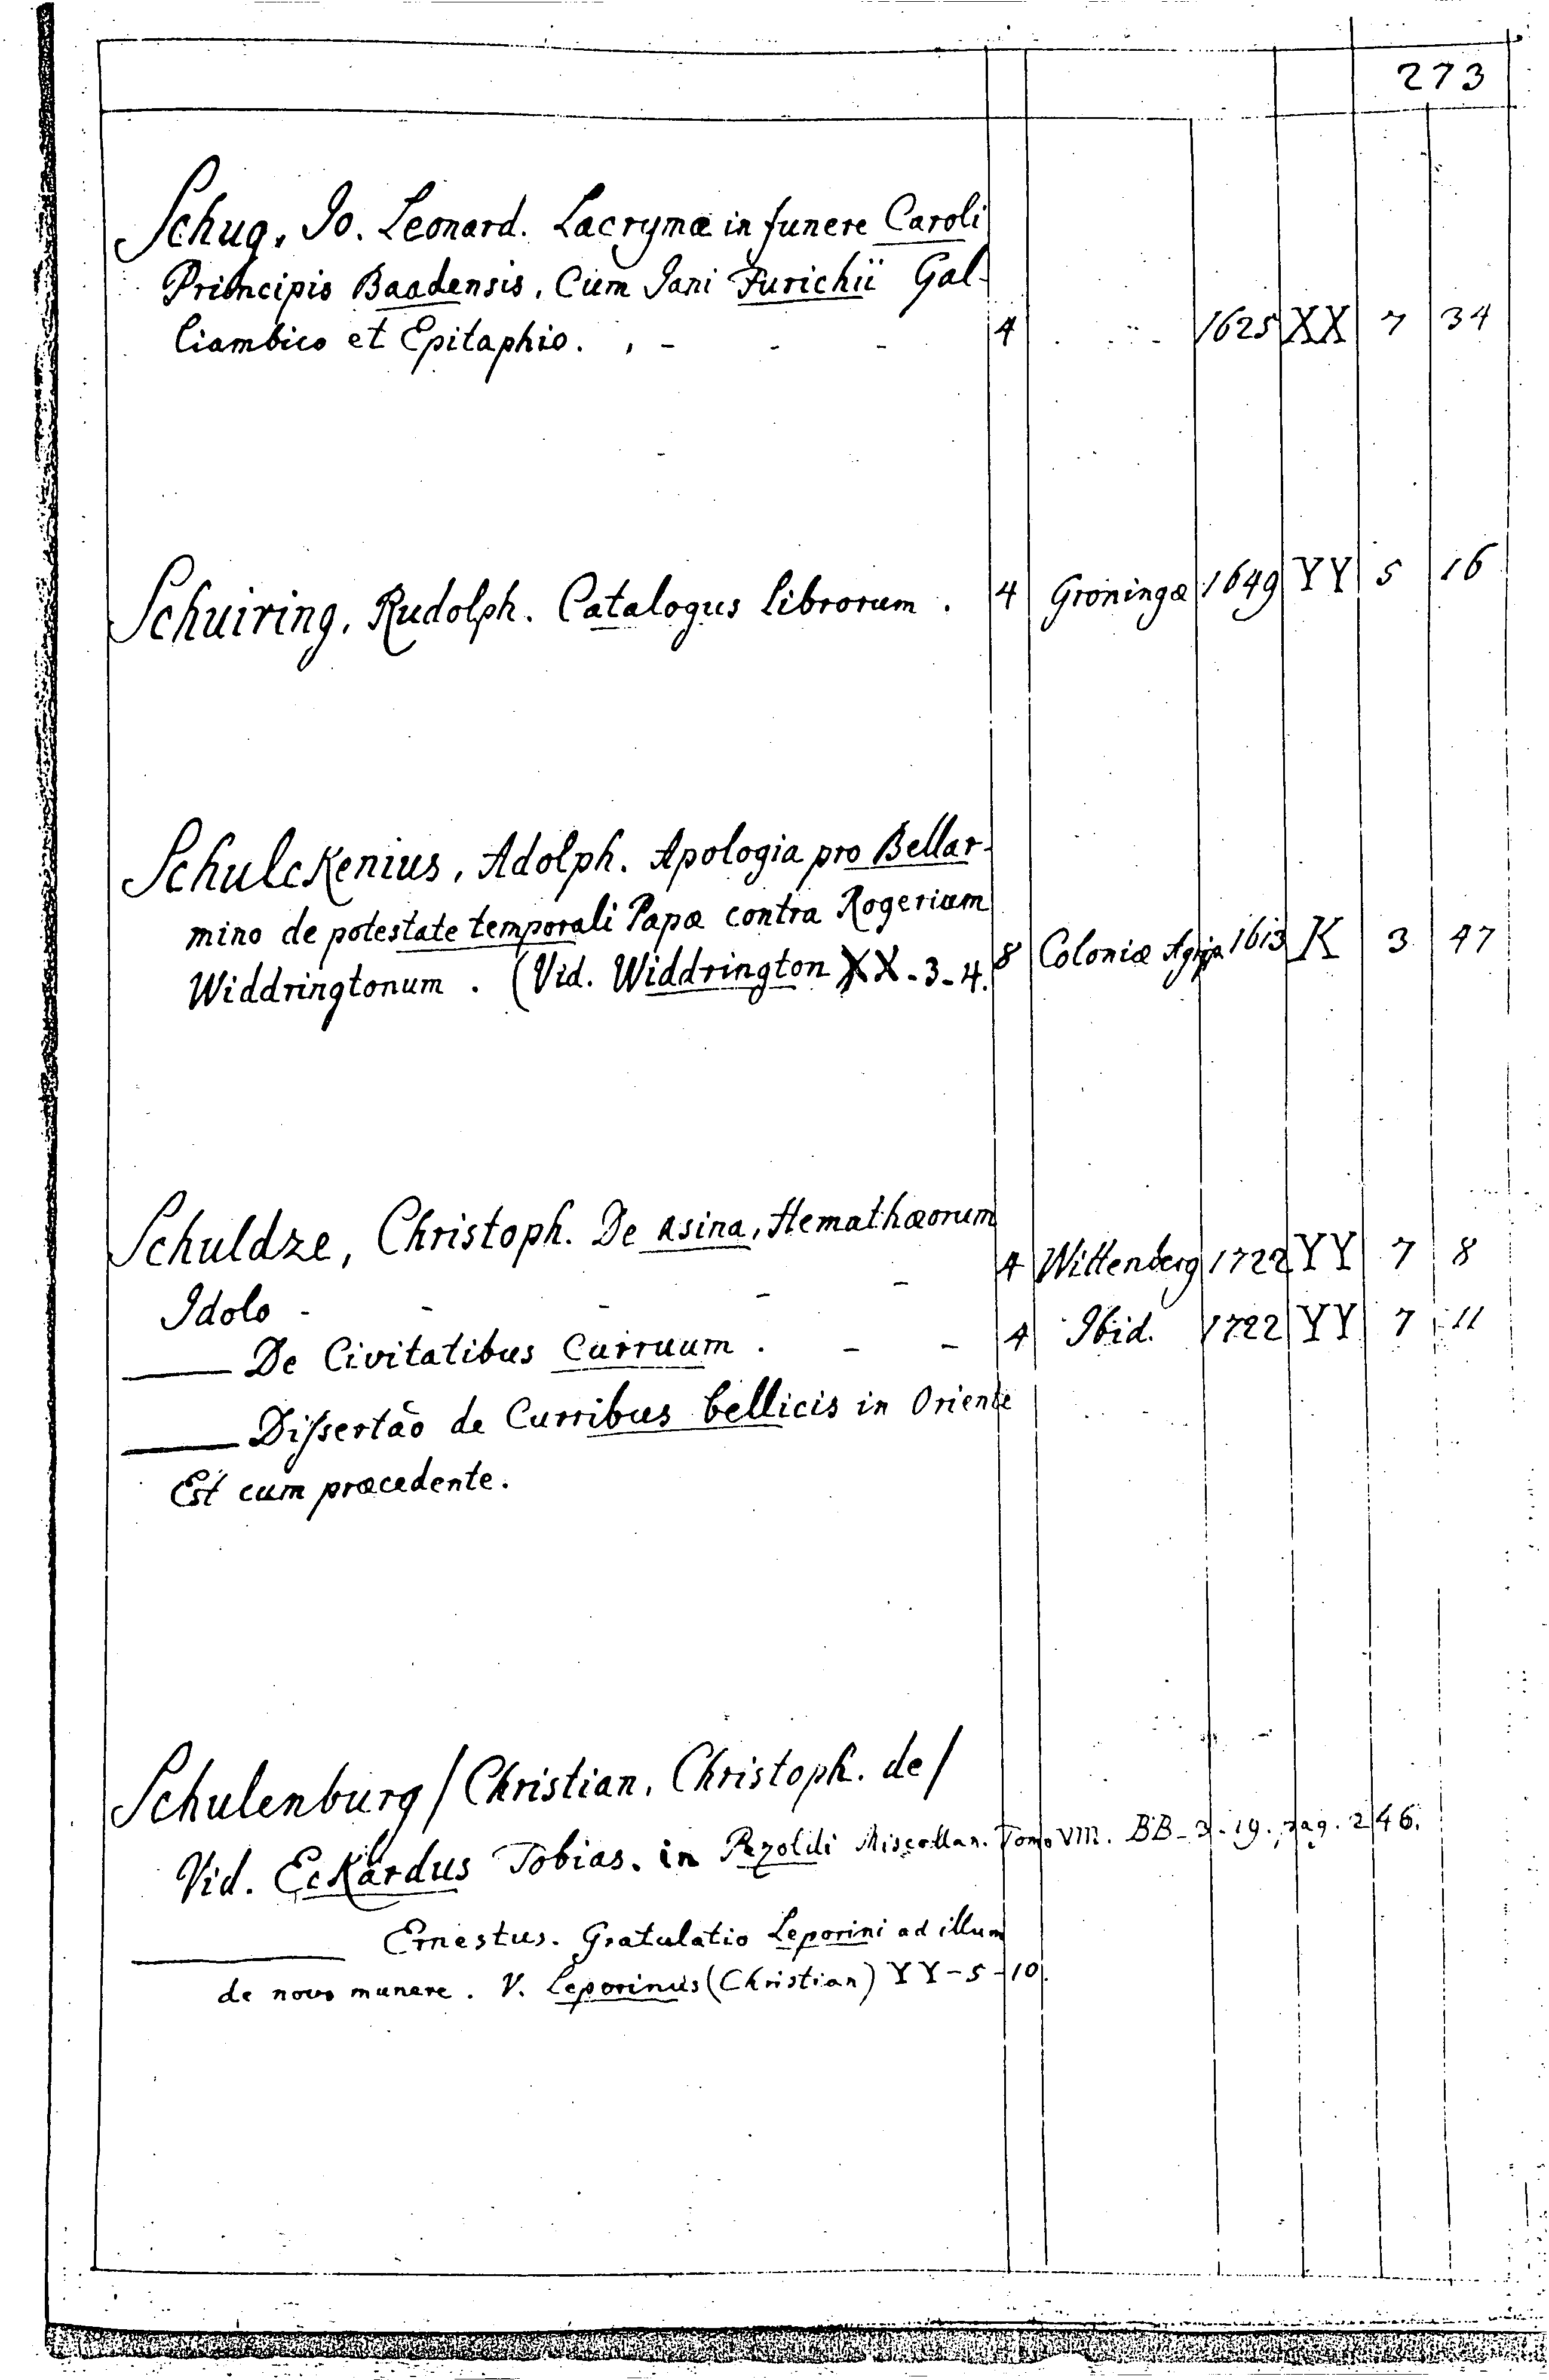 273
Schug, Io. Leonard. Lacrymæ in funere Caroli
Principis Baadensis, Cum Jani Furichii Gal-
liambico et Epitaphio. 4 1625 XX 7 34
Schuiring, Rudolph. Catalogus librorum. 4 Groningæ 1649 YY 5 16
Schulckenius, Adolph. Apologia pro Bellar-
mino de potestate temporali Papæ contra Rogerium
Widdringtonum. (Vid. Widdrington XX-3-4. 8 Coloniæ Agripp. 1613 K 3 47
Schuldze, Christoph. De Asina, Hemathæorum
Idolo - - - - - 4 Wittenberg 1722 YY 7 8
—— De Civitatibus Curruum. - - 4 Ibid. 1722 YY 7 11
—— Dissertão de Curribus bellicis in Oriente
Est cum præcedente.
Schulenburg / Christian, Christoph. de /
Vid. Eckhardus Tobias. in Pezoldi Miscellan. Tomo VIII. BB-3-19. pag. 246.
—— Ernestus. Gratulatio Leporini ad illum
de novo munere. V. Leporinus (Christian) YY-5-10.